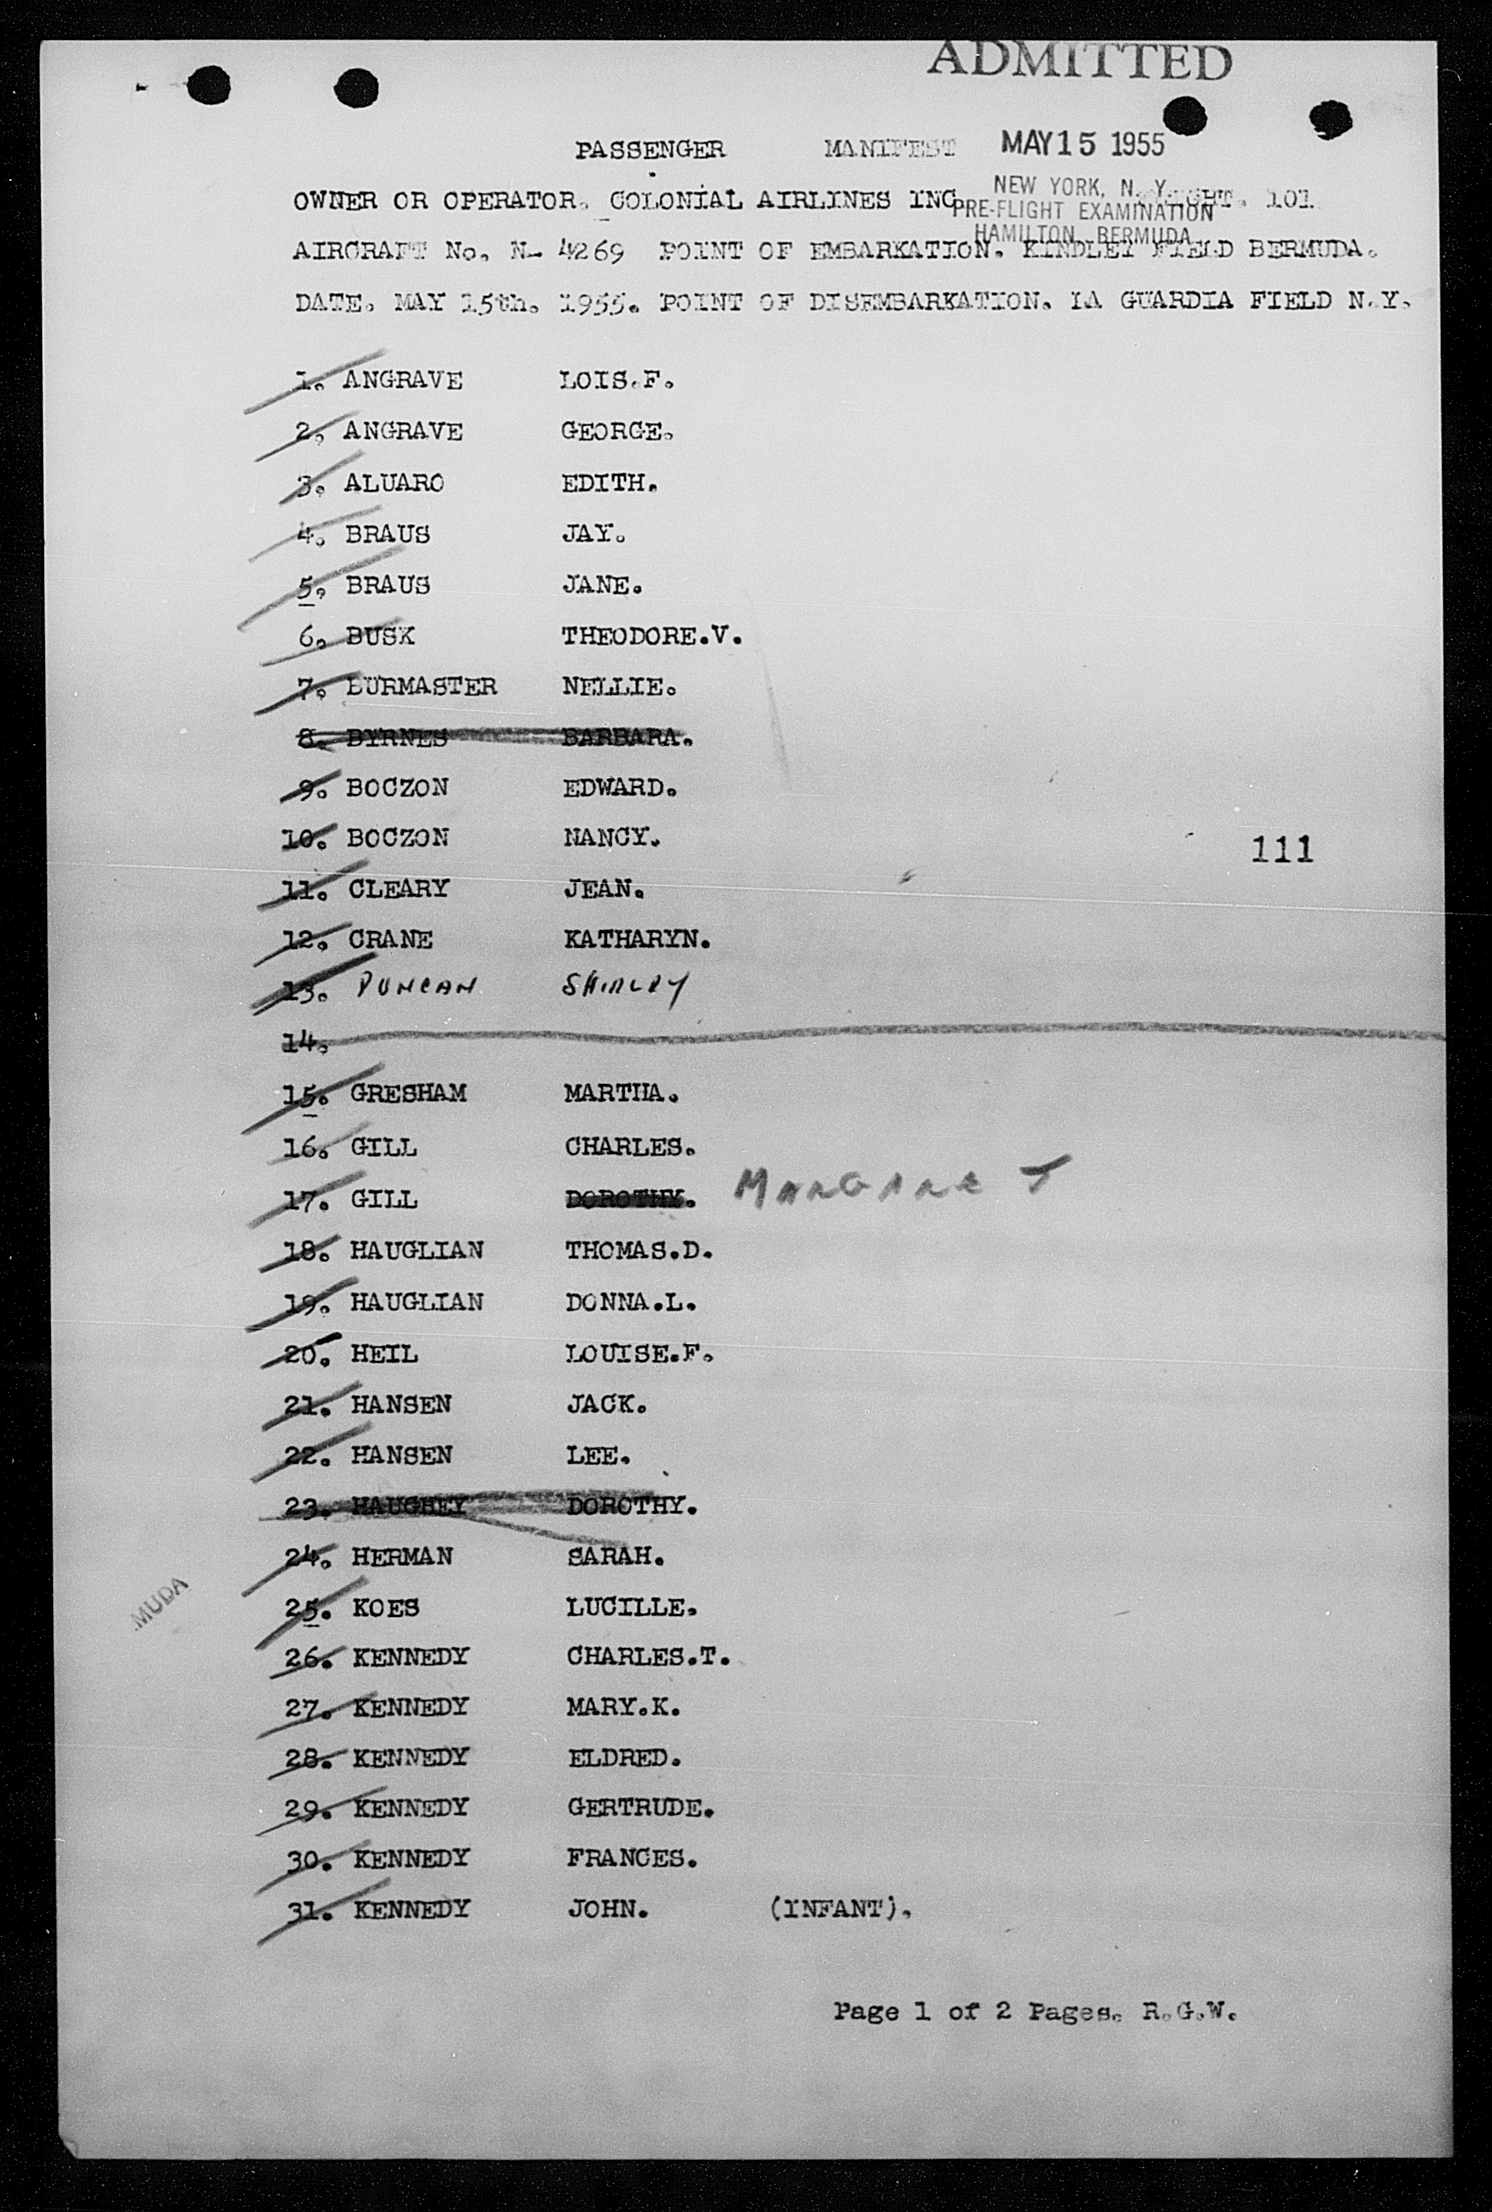 ADMITTED
PASSENGER MANIFEST MAY 15 1955
NEW YORK, N. Y.
OWNER OR OPERATOR. COLONIAL AIRLINES INC FLIGHT. 101
PRE-FLIGHT EXAMINATION
HAMILTON BERMUDA
AIRCRAFT No. N- 4269 POINT OF EMBARKATION. KINDLEY FIELD BERMUDA.
DATE. MAY 15th. 1955. POINT OF DISEMBARKATION. LA GUARDIA FIELD N.Y.
1. ANGRAVE LOIS.F.
2. ANGRAVE GEORGE.
3. ALUARO EDITH.
4. BRAUS JAY.
5. BRAUS JANE.
6. BUSK THEODORE.V.
7. BURMASTER NELLIE.
8. BYRNES BARBARA.
9. BOCZON EDWARD.
10. BOCZON NANCY.
111
11. CLEARY JEAN.
12. CRANE KATHARYN.
13. DUNCAN SHIRLEY
14.
15. GRESHAM MARTHA.
16. GILL CHARLES.
17. GILL DOROTHY. MARGARET
18. HAUGLIAN THOMAS.D.
19. HAUGLIAN DONNA.L.
20. HEIL LOUISE.F.
21. HANSEN JACK.
22. HANSEN LEE.
23. HAUGHEY DOROTHY.
24. HERMAN SARAH.
MUDA
25. KOES LUCILLE.
26. KENNEDY CHARLES.T.
27. KENNEDY MARY.K.
28. KENNEDY ELDRED.
29. KENNEDY GERTRUDE.
30. KENNEDY FRANCES.
31. KENNEDY JOHN. (INFANT).
Page 1 of 2 Pages. R.G.W.